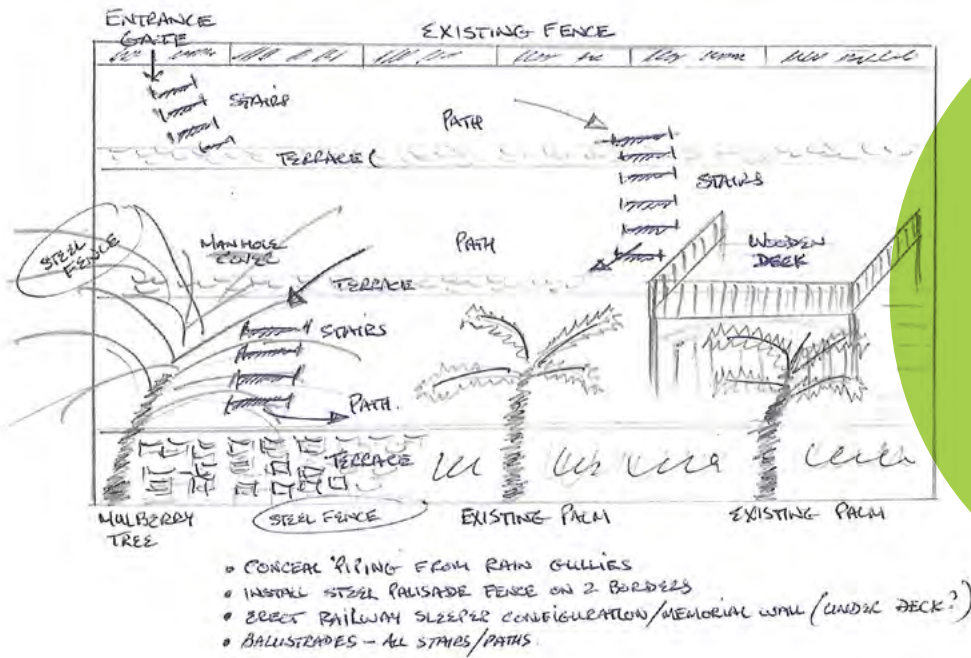 ENTRANCE
GATE
EXISTING FENCE
STAIRS
PATH
TERRACE
STAIRS
STEEL
FENCE
MANHOLE
COVER
PATH
WOODEN
DECK
TERRACE
STAIRS
PATH.
TERRACE
MULBERRY
TREE
STEEL FENCE
EXISTING PALM
EXISTING PALM
• CONCEAL 'PIPING' FROM RAIN GULLIES
• INSTALL STEEL PALISADE FENCE ON 2 BORDERS
• ERECT RAILWAY SLEEPER CONFIGURATION/MEMORIAL WALL (UNDER DECK?)
• BALUSTRADES - ALL STAIRS/PATHS.